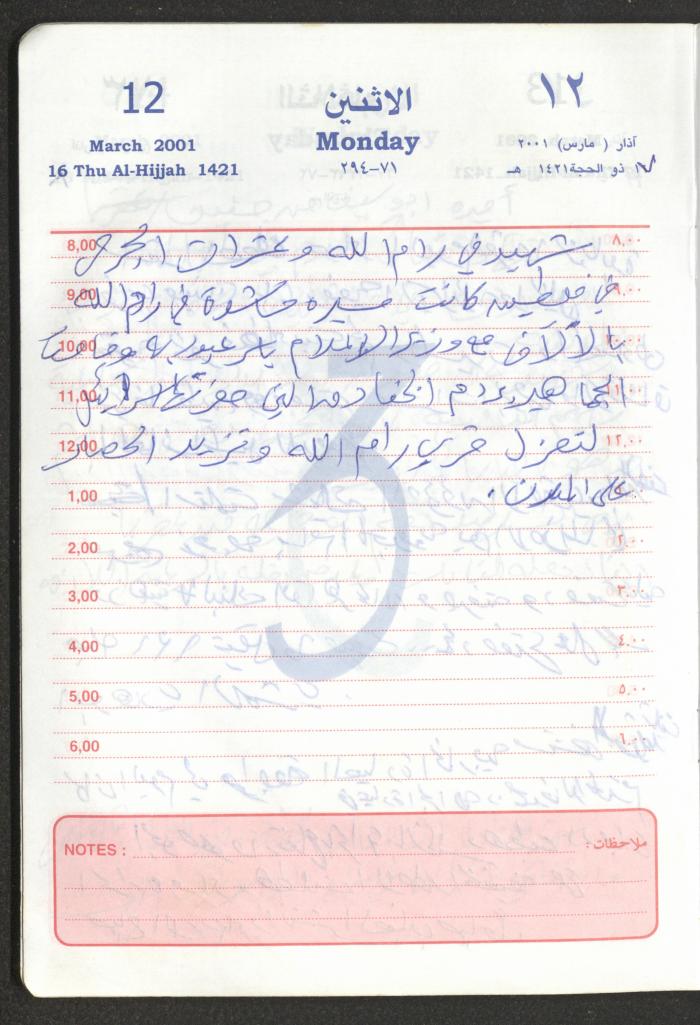 12
الاثنين
١٢
March 2001
Monday
آذار ( مارس ) ٢٠٠١
16 Thu Al-Hijjah 1421
٧١-٢٩٤
ذو الحجة ١٤٢١ هـ
8,00 شهيد في رام الله وعشرات الجرحى ٨,٠٠
9,00 في فلسطين كانت مسيرة حاشدة في رام الله ٩,٠٠
10,00 بالآلاف مع وزير الإعلام ياسر عبد ربه وقامت ١٠,٠٠
11,00 الجماهير بردم الخنادق التي حفرتها إسرائيل ١١,٠٠
12,00 لتعزل قرى رام الله وتزيد الحصار ١٢,٠٠
1,00 على المدن.
2,00 ٢,٠٠
3,00 ٣,٠٠
4,00 ٤,٠٠
5,00 ٥,٠٠
6,00 ٦,٠٠
NOTES : ملاحظات :